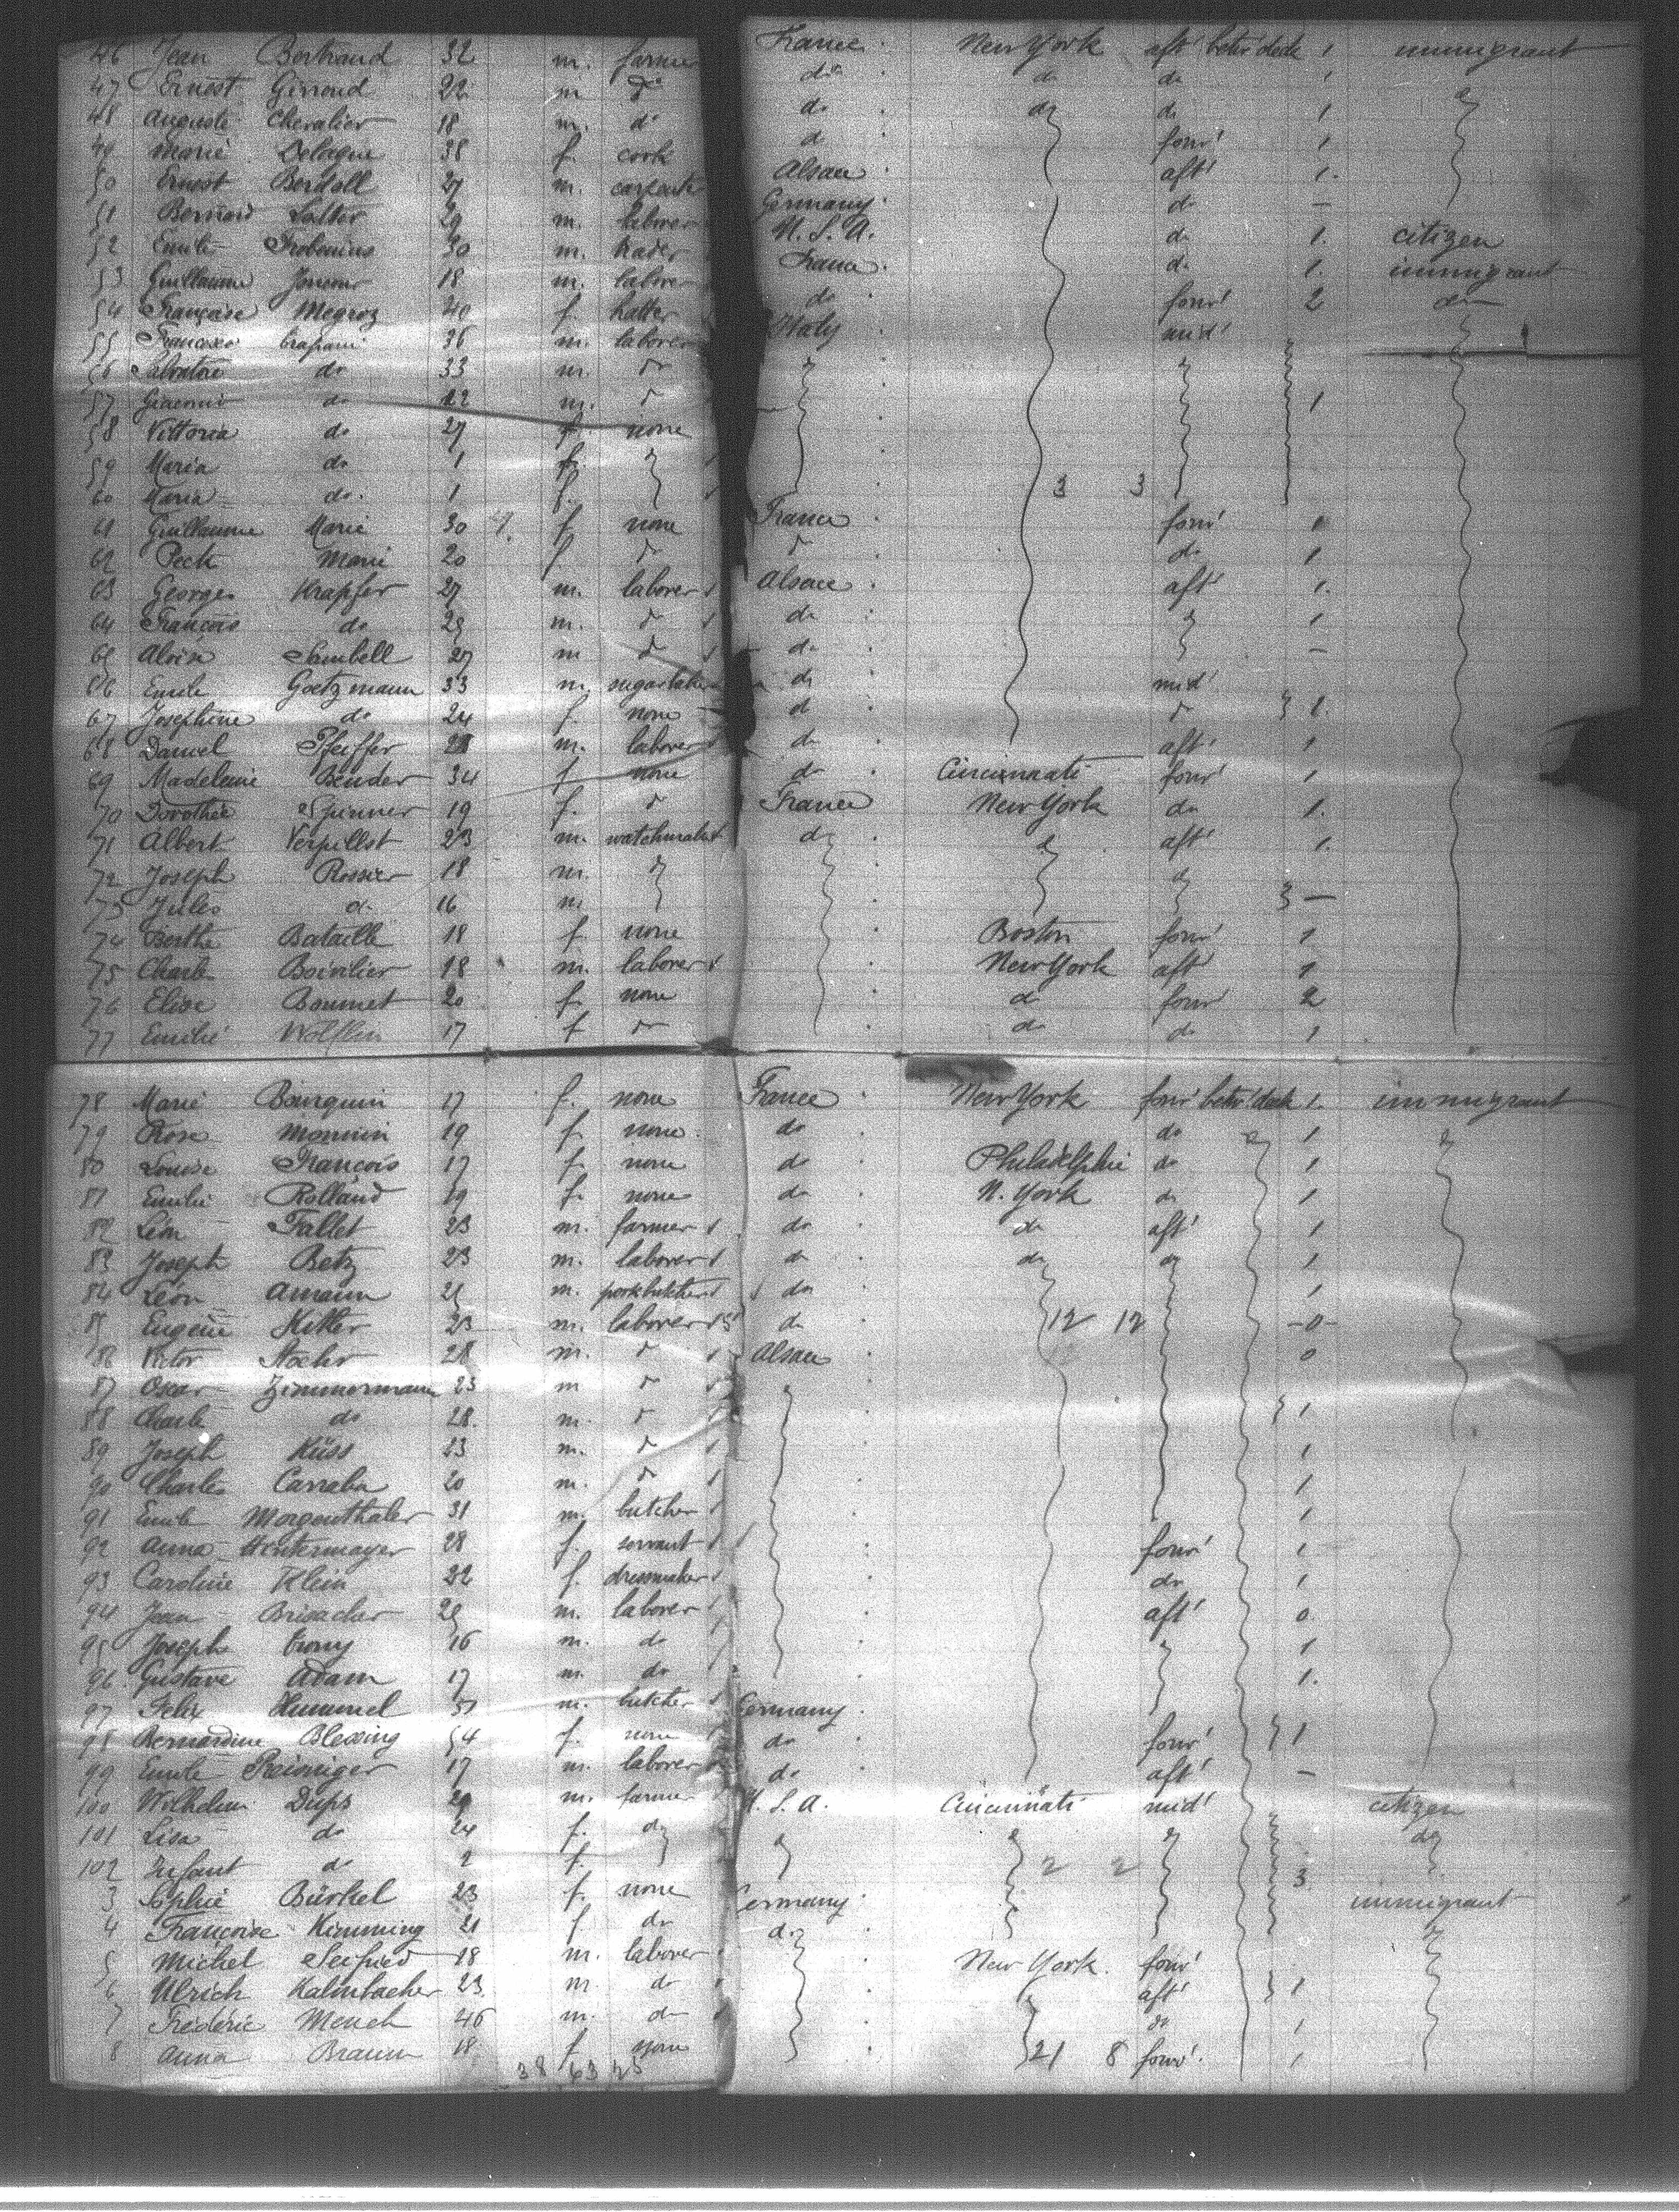 46 Jean Bertrand 32 m. farmer France New York aft betw deck 1. immigrant
47 Ernest Girroud 22 m do do do do 1
48 Auguste Chevalier 18 m. do do do do 1
49 Marie 38 f. cook d forw' 1
50 Ernest Berdoll 27 m. carpenter Alsace aft' 1.
51 Bernard 29 m. laborer Germany do —
52 Emile Frobenius 30 m. trader U. S. A. do 1. citizen
53 Guillaume 18 m. laborer France do 1. immigrant
54 Françoise Megroz 40 f. hatter do forw' 2 do
55 Francesco 36 m. laborer Italy mid'
56 Salvatore do 33 m. do
57 do 22 m. do 1
58 Vittoria do 27 f. none
59 Maria do 1 f.
60 Maria do. 1 f. 3 3
61 Guillaume Marie 30 f none France forw' 1
62 Peck Marie 20 f do do do 1
63 Georges Krapfer 27 m. laborer Alsace aft' 1.
64 François do 29 m. do do 1
65 Aloise 27 m do do —
66 Emile Goetzmann 33 m. do mid'
67 Josephine do 24 f. none d do 1.
68 Daniel Pfeiffer 28 m. laborer do aft' 1
69 Madeleine Bender 34 f none do Cincinnati forw' 1
70 Dorothée Spinner 19 f. do France New York do 1.
71 Albert Verpillot 23 m. watchmaker do do aft' 1.
72 Joseph Rossier 18 m. do do
73 Jules do 16 m —
74 Berthe Bataille 18 f none Boston forw' 1
75 Charles 18 m. laborer New York aft' 1
76 Elise Bonnet 20 f. none do forw' 2
77 Emilie Wölflin 17 f do do do 1
78 Marie Bourquin 17 f. none France New York forw' betw' deck 1. immigrant
79 Rose Monnin 19 f none do do 1
80 Louise François 17 f. none do Philadelphie do 1
81 Emilie Rolland 19 f. none do N. York do 1
82 Léon Fallet 23 m. farmer do do aft' 1
83 Joseph Betz 23 m. laborer do do do 1
84 Léon Amann 29 m. porkbutcher do 1
85 Eugène Kitter 23 m. laborer do 12 12 -0-
86 Victor Stoehr 28 m. do Alsace 0
87 Oscar Zimmermann 23 m do
88 Charles do 28. m. do 1
89 Joseph Küss 23 m. do 1
90 Charles 20 m. do 1
91 Emile Morgenthaler 31 m. butcher 1
92 Anna 28 f. servant forw' 1
93 Caroline Klein 22 f. dressmaker do 1
94 Jean Brisacher 29 m. laborer aft' 0
95 Joseph 16 m. do 1
96 Gustave Adam 17 m. do 1.
97 Felix Hummel 51 m. butcher Germany.
98 Bernardine Blessing 54 f. none do forw' 1
99 Emile Reisiniger 17 m. laborer do aft' —
100 Wilhelm Dups 29 m. farmer U. S. A. Cincinnati mid' citizen
101 Lisa do 24 f. do do
102 Infant do 2 f. 2 2 3
3 Sophie Bürkel 23 f. none Germany immigrant
4 Françoise Kimming 21 f do do
5 Michel Seifried 18 m. laborer New York. forw'
6 Ulrich Kalmbacher 23. m. do aft' 1
7 Frédéric Mench 46 m. do do 1
8 Anna Braun 18 f none 21 8 forw'. 1
38 63 25